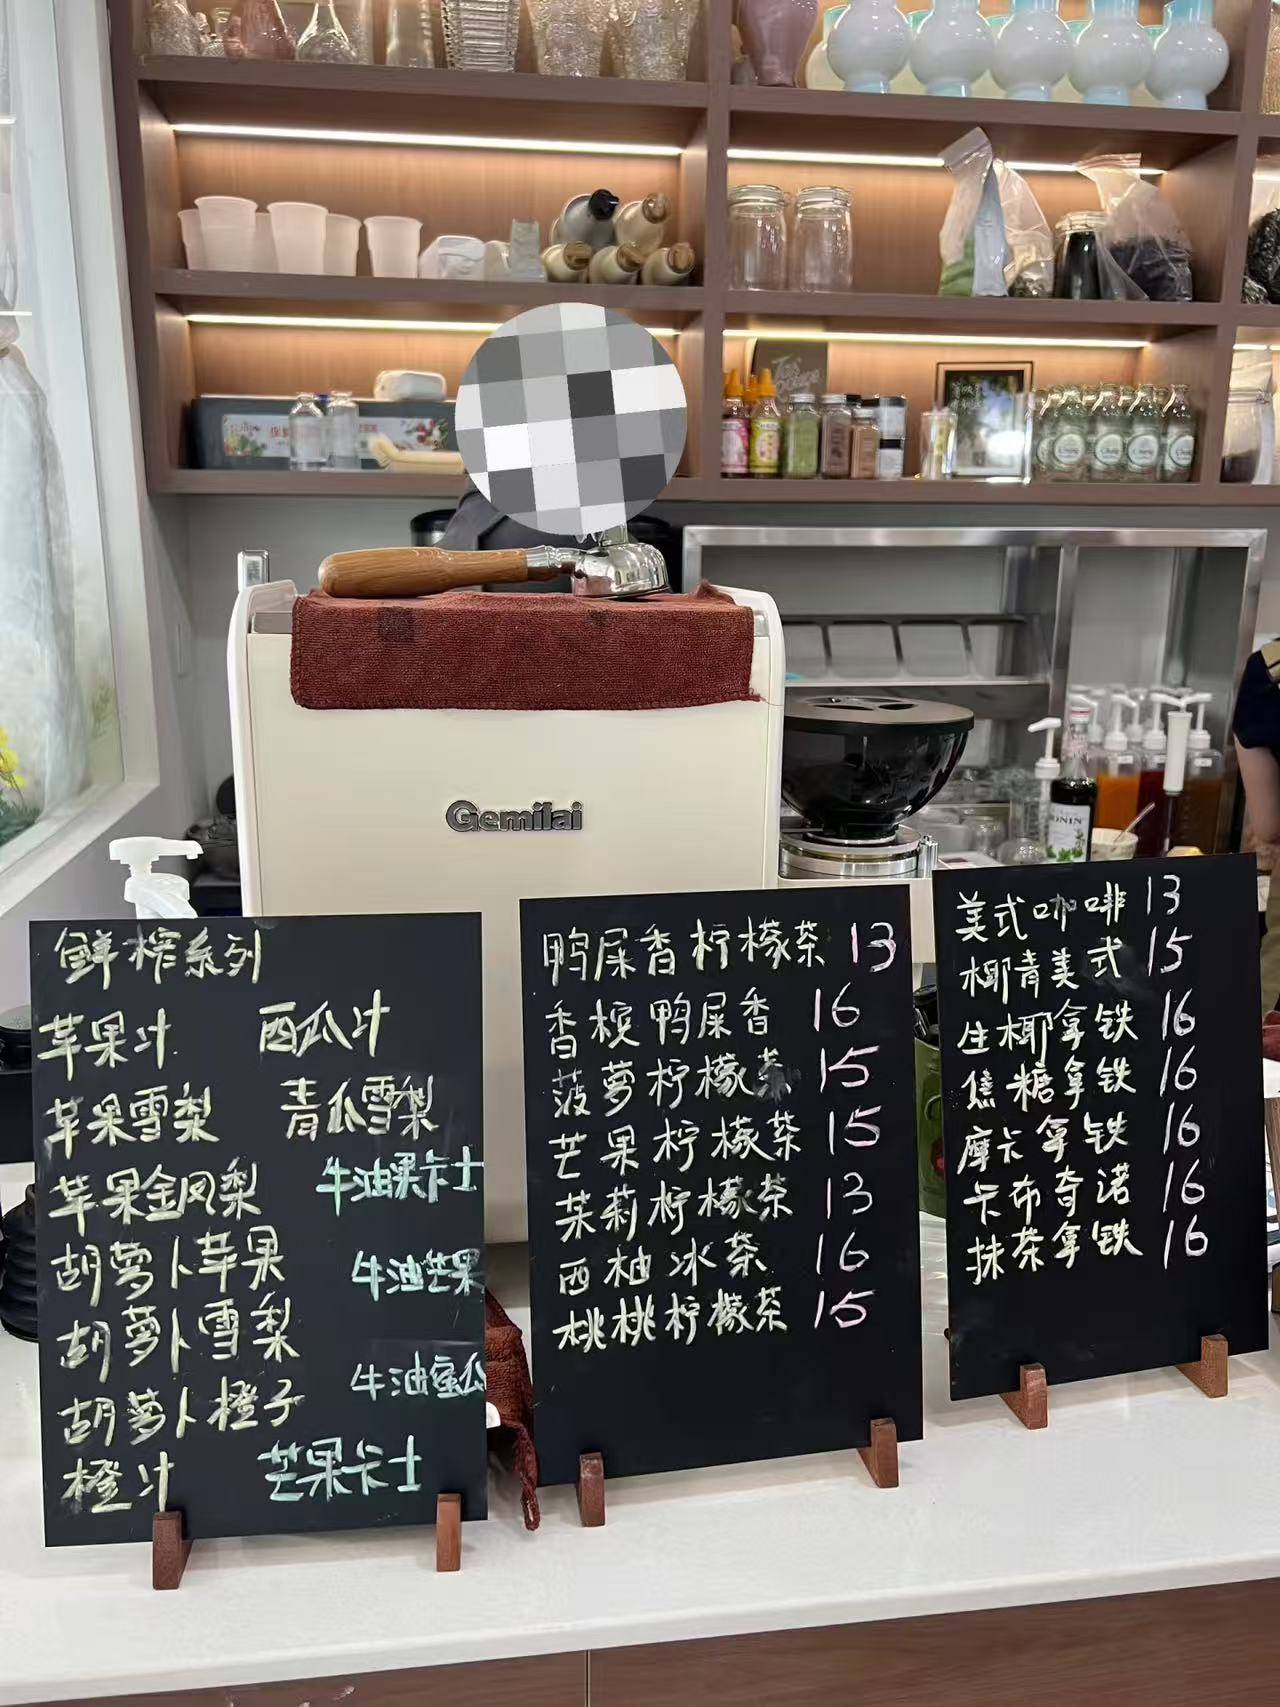 Gemilai
鲜榨系列
苹果汁 西瓜汁
苹果雪梨 青瓜雪梨
苹果金凤梨 牛油果卡士
胡萝卜苹果 牛油芒果
胡萝卜雪梨
胡萝卜橙子 牛油蜜瓜
橙汁 芒果卡士
鸭屎香柠檬茶 13
香槟鸭屎香 16
菠萝柠檬茶 15
芒果柠檬茶 15
茉莉柠檬茶 13
西柚冰茶 16
桃桃柠檬茶 15
美式咖啡 13
椰青美式 15
生椰拿铁 16
焦糖拿铁 16
摩卡拿铁 16
卡布奇诺 16
抹茶拿铁 16